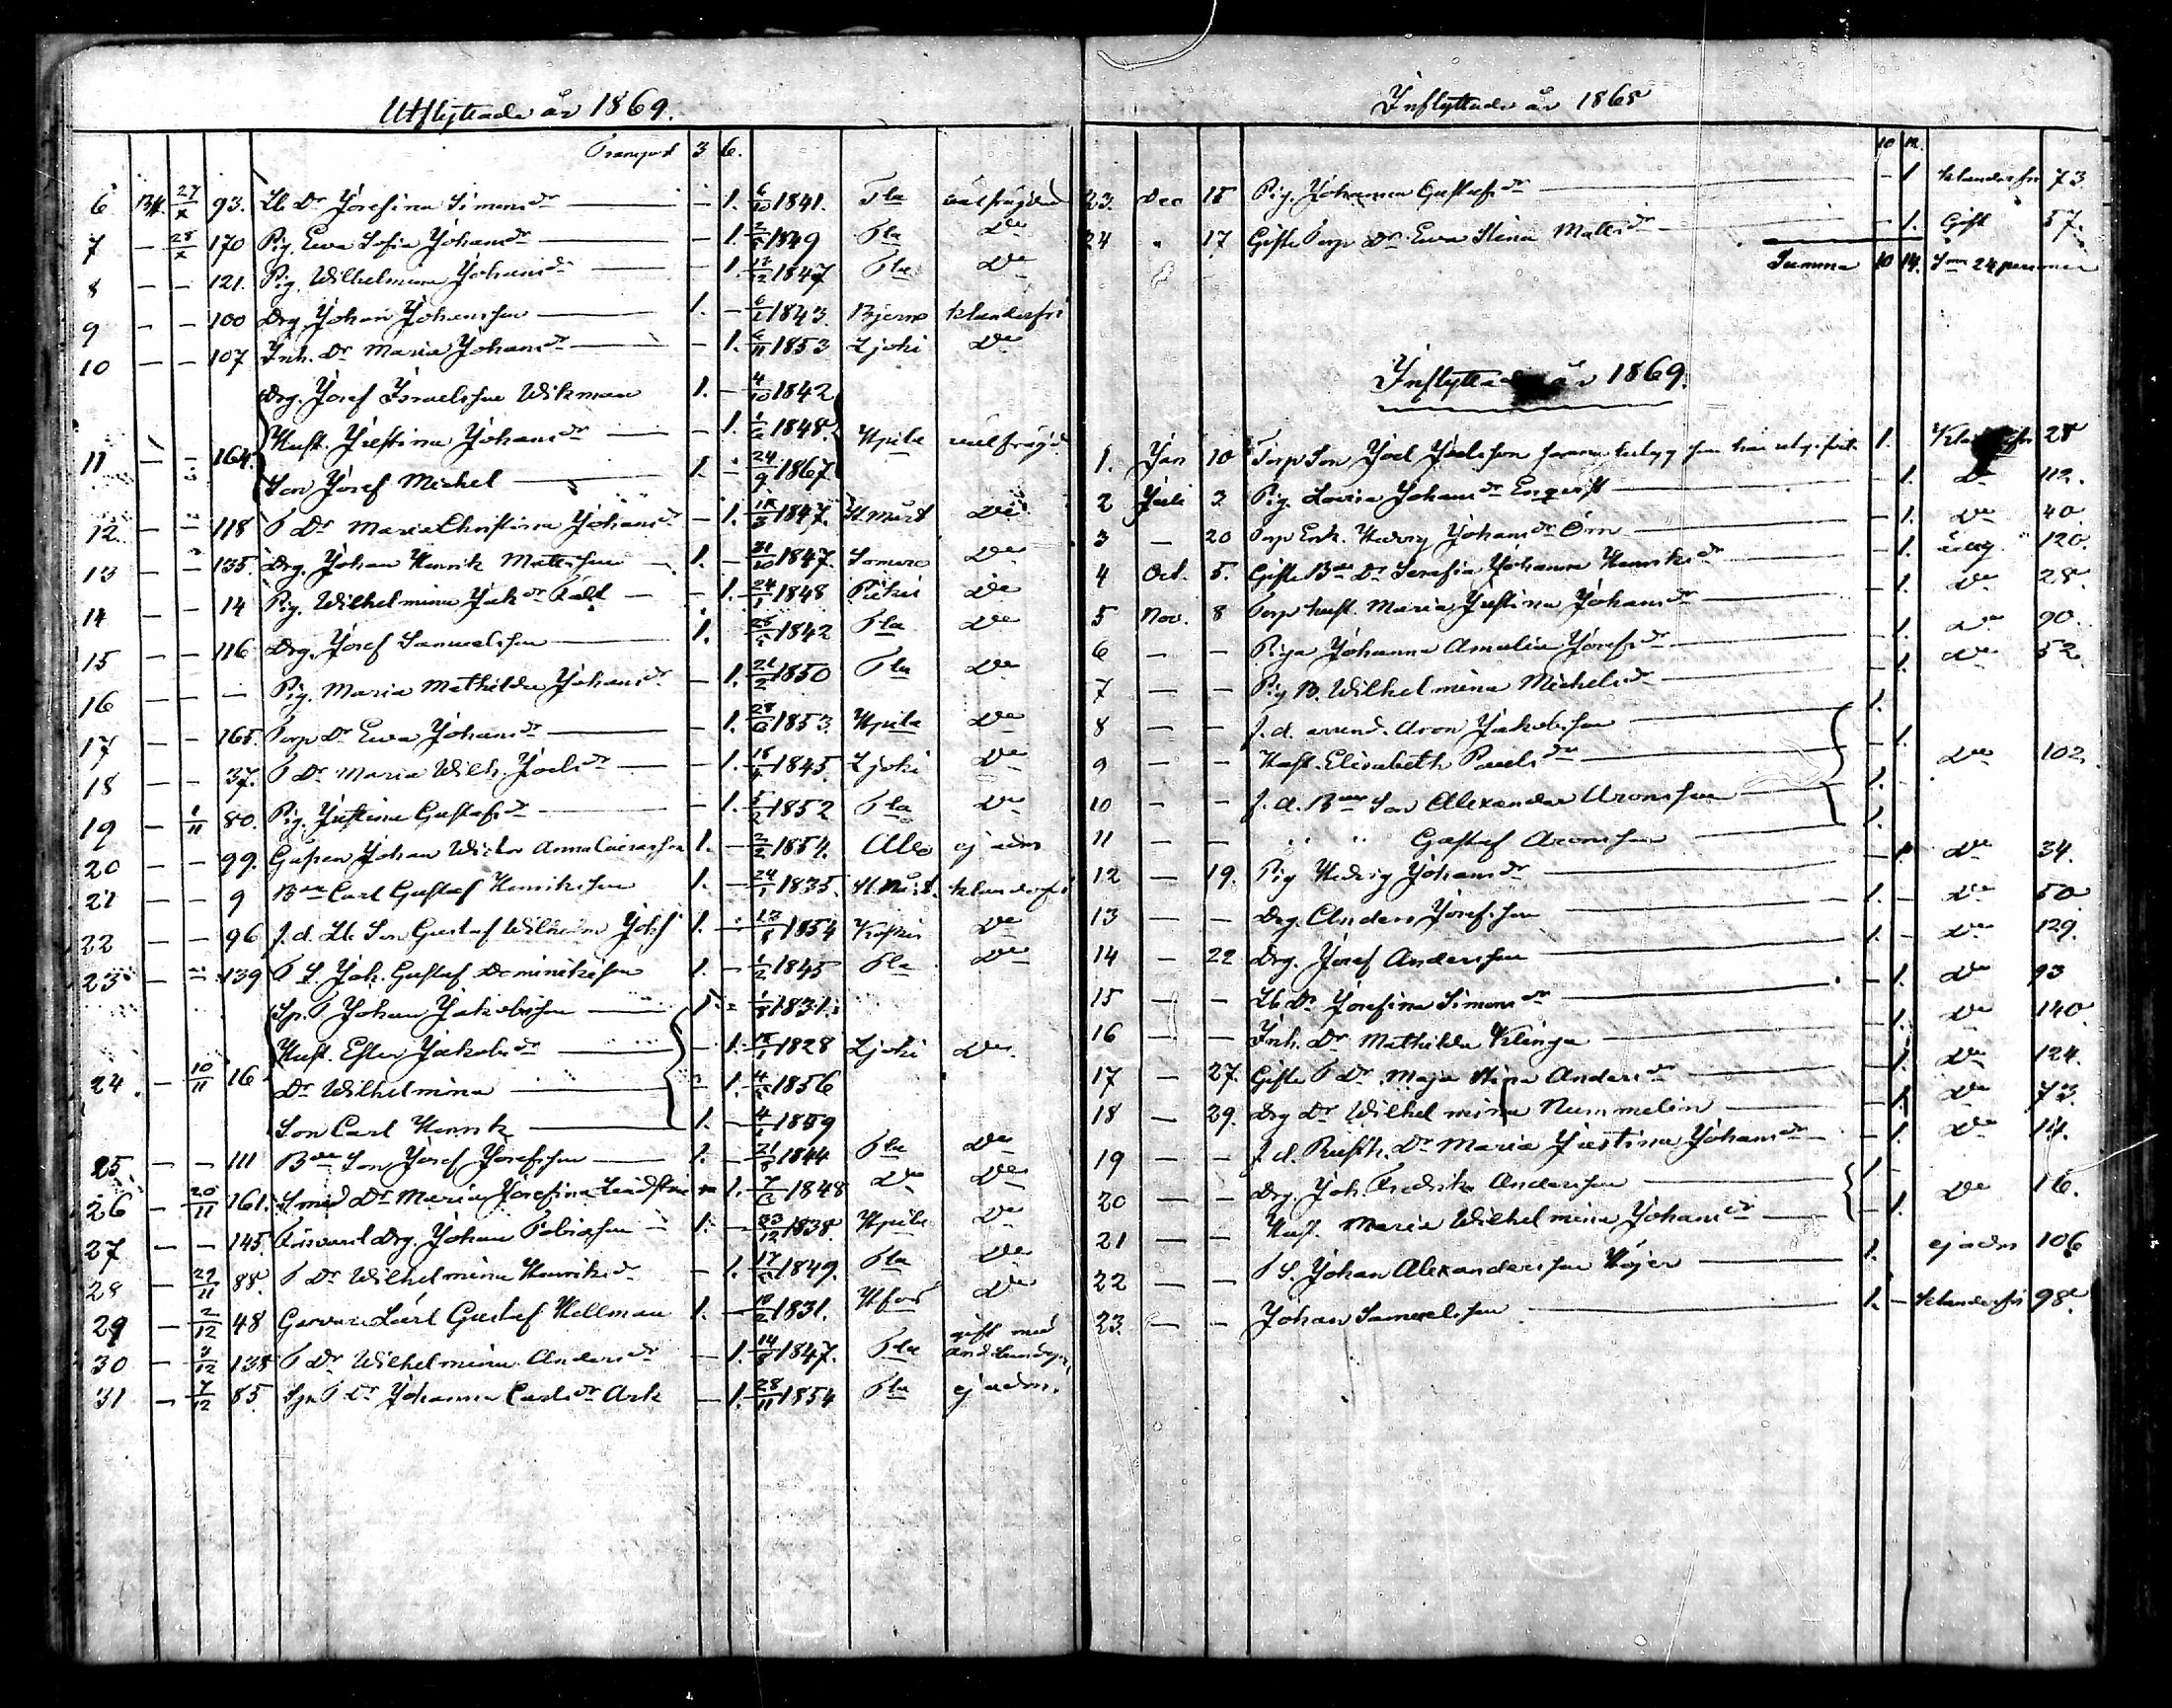 Utflyttade år 1869.
Transport 3 6.
6 27/x 93. Lb Dr Josefina Simonsdr — 1. 6/10 1841. Tla välfrägdad
7 — 28/x 170 Pig. Ewa Sofia Johansdr — 1. 1849 Tla Do
8 — — 121. Pig. Wilhelmina Johansdr — 1. 12/12 1847 Tla Do
9 — — 100 Drg. Johan Johansson 1. — 1843. Bjerno klanderfri
10 — — 107 Inh. Dr Maria Johansdr — 1. 6/11 1853 Ljoki Do
Drg. Josef Israelsson Wikman 1. — 4/10 1842
11 — 164. Hust. Justina Johansdr — 1. 1848. Hpila välfrägd
Son Josef Michel 1. — 24/9 1867
12. — 118 T Dr Maria Christina Johansdr — 1. 1847. St. Mårt Do
13 — — 135. Drg. Johan Henrik Mattsson 1. — 31/10 1847. Somero Do
14 — — 14 Pig. Wilhelmina Jak.dr Falt — 1. 24/1 1848 Pickis Do
15 — — 116 Drg. Josef Samuelsson 1. 1842 Tla Do
16 — — — Pig. Maria Mathilda Johansdr — 1. 1850 Tla Do
17 — — 165. Torp Dr Ewa Johansdr — 1. 28/6 1853. Hpila Do
18 — — 37. T Dr Maria Wilh. Joelsdr — 1. 1845. Ljoki Do
19 — 1/11 80. Pig. Justina Gustafsdr — 1. 5/2 1852 Tla Do
20 — — 99. Gossen Johan Wictor Anna Caisasson 1. — 2/2 1854. Åbo ej adm
21 — — 9 Bde Carl Gustaf Henriksson 1. — 24/1 1835. St. Mårt. klanderfri
22 — — 96 f.d. Lb Son Gustaf Wilhelm Johs 1. — 1854 Do
23 — — 139 T S. Joh. Gustaf Dominikisson 1. — 1/2 1845 Tla Do
Sp. T Johan Jakobsson 1. 1831.
Hust. Ester Jakobsdr — 1. 1828 Ljoki Do
24. — 10/11 16 Dr Wilhelmina — 1. 1856
Son Carl Henrik 1. — 1859
25. — — 111 Bde Son Josef Josefsson 1. — 21/8 1844 Tla Do
26 — 20/11 161. Smed Dr Maria Josefina — 1. 1848 Do Do
27 — — 145. Drg. Johan Tobiasson 1. — 23/12 1838. Hpila Do
28 — 29/11 88. T Dr Wilhelmina Henriksdr — 1. 1849. Tla Do
29 — 2/12 48 Garvare Carl Gustaf Hellman 1. — 10/2 1831. Hfors Do
30 — 3/12 138 T Dr Wilhelmina Andersdr — 1. 14/8 1847. Tla gift med
31 — 7/12 85. Sp T Dr Johanna Carlsdr Ark — 1. 28/11 1854 Tla ej adm.
Inflyttade år 1868
10 12.
23. Dec 15 Pig. Johanna Gustafsdr — 1 klanderfri 73.
24 " 17 Gifta Torp Dr Ewa Stina Mattsdr — 1. Gift 57.
Summa 10 14. Sma 24 personer
Inflyttade år 1869.
1. Jan 10 Torp Son Joel Joelsson 1. 28
2 Juli 3 Pig. Lovisa Johansdr Enqvist — 1. Do 112.
3 — 20 Torp Enk. Hedvig Johansdr Örn — 1. Do 40
4 Oct. 5. Gifta Bde Dr Serafia Johanna Henriksdr — 1. 120.
5 Nov. 8 Torp hust. Maria Justina Johansdr 1. Do 28.
6 — — Piga Johanna Amalia Josefsdr 1. Do 90.
7 — — Pig B. Wilhelmina Michelsdr 1. Do 52
8 — — f.d. arrend. Aron Jakobsson 1.
9 — — Hust. Elisabeth Paulsdr 1. Do 102.
10 — — f.d. Bde Son Alexander Aronsson 1.
11 — — " " Gustaf Aronsson 1.
12 — 19. Pig Hedvig Johansdr — 1 Do 34.
13 — — Drg. Anders Josefsson 1. — Do 50
14 — 22 Drg. Josef Andersson 1. — Do 129.
15 — — Lb Dr Josefina Simonsdr — 1. Do 93
16 — — Inh. Dr Mathilda Klinga — 1. Do 140
17 — 27. Gifta T Dr Maja Stina Andersdr — 1. Do 124.
18 — 29. Drg Dr Wilhelmina Nummelin — 1. Do 73.
19 — — f.d. Rusth. Dr Maria Justina Johansdr — 1. Do 14.
20 — — Drg. Joh. Fredrik Andersson 1 —
21 — — Hust. Maria Wilhelmina Johansdr — 1. Do 16.
22 — — T S. Johan Alexandersson Höjer 1. ej adm 106
23. — — Johan Samuelsson 1. — klanderfri 98.